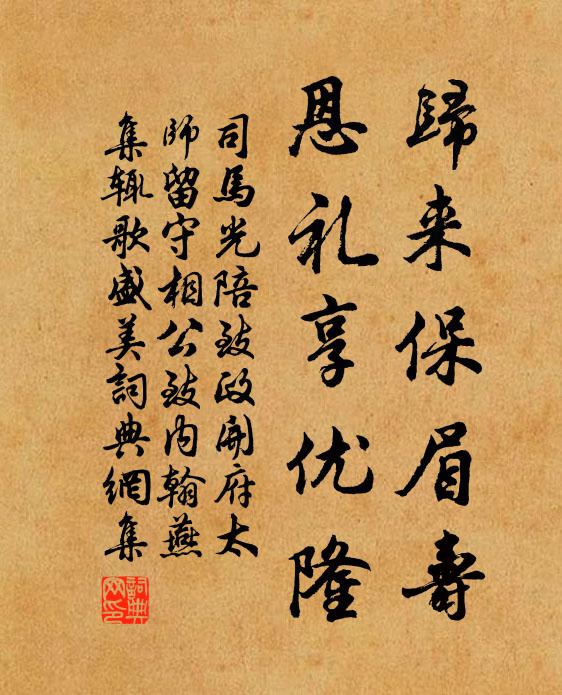 歸来保眉壽
恩礼享优隆
司馬光陪致政開府太
師留守相公致内翰燕
集輒歌盛美詞典網集
詞典
网印